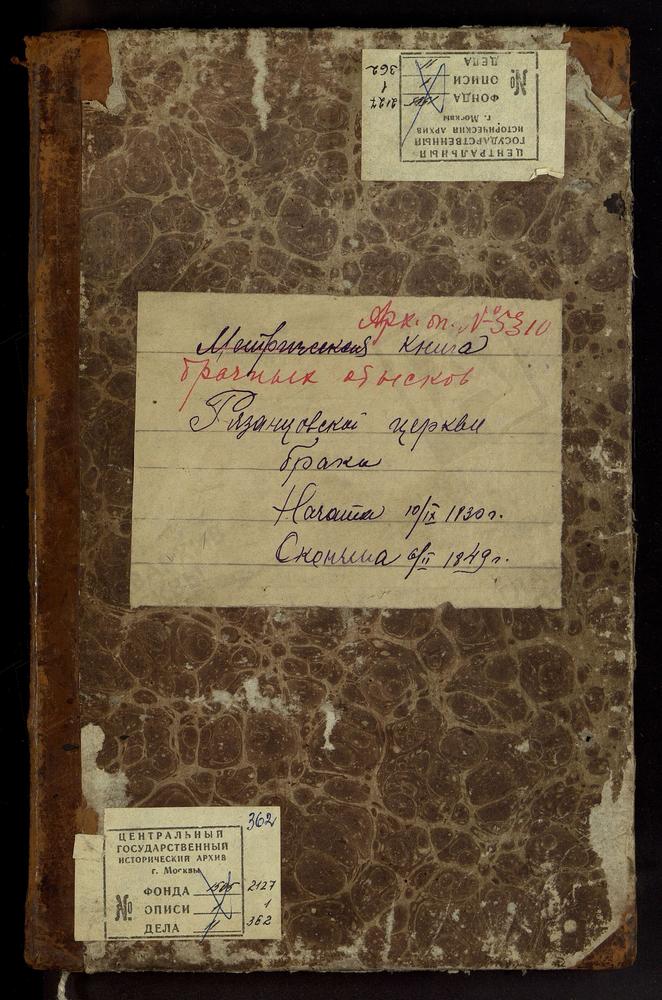 ЦЕНТРАЛЬНЫЙ
ГОСУДАРСТВЕННЫЙ
ИСТОРИЧЕСКИЙ АРХИВ
г. Москвы
№
ФОНДА 2127
ОПИСИ 1
ДЕЛА 362
Арх. оп. № 5310
Метрическая книга
брачных обысков
Рязанцовской церкви
браки
Начата 10/IX 1830 г.
Окончена 6/II 1849 г.
362
ЦЕНТРАЛЬНЫЙ
ГОСУДАРСТВЕННЫЙ
ИСТОРИЧЕСКИЙ АРХИВ
г. Москвы
№
ФОНДА 2127
ОПИСИ 1
ДЕЛА 362